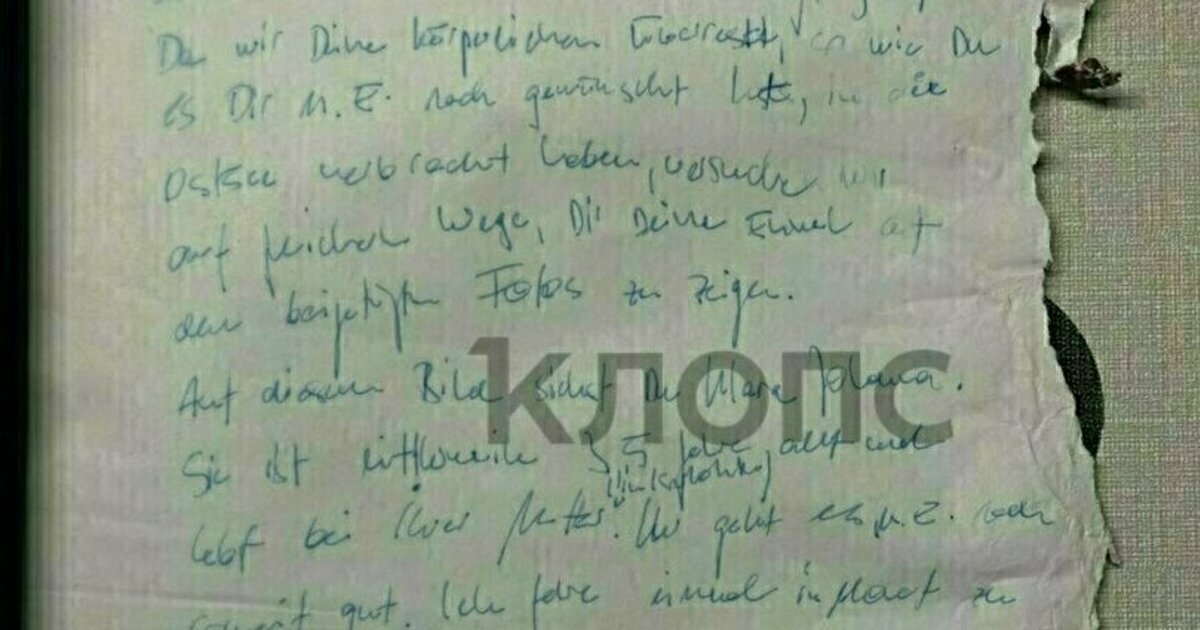 Da wir Deine körperlichen Überreste, so wie Du
es Dir m. E. noch gewünscht hast, in die
Ostsee verbracht haben, versuchen wir
auf gleichem Wege, Dir Deine Enkel auf
den beigefügten Fotos zu zeigen.
Auf diesem Bild siehst Du Mara Johanna.
Sie ist mittlerweile 3,5 Jahre alt und
lebt bei ihrer Mutter. Ihr geht es m. E. nach
soweit gut. Ich fahre einmal im Monat zu
клопс